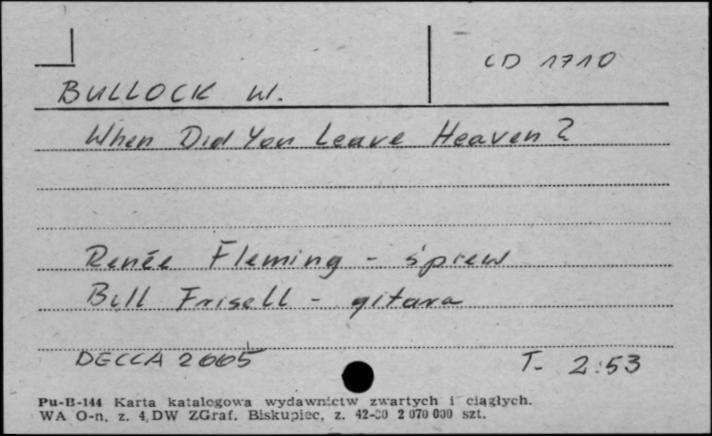 CD 1710
BULLOCK W.
When Did You Leave Heaven?
Renée Fleming - śpiew
Bill Frisell - gitara
DECCA 2005 T- 2:53
Pu-B-144 Karta katalogowa wydawnictw zwartych i ciągłych.
WA O-n, z. 4, DW ZGraf. Biskupiec, z. 42-80 2 070 000 szt.